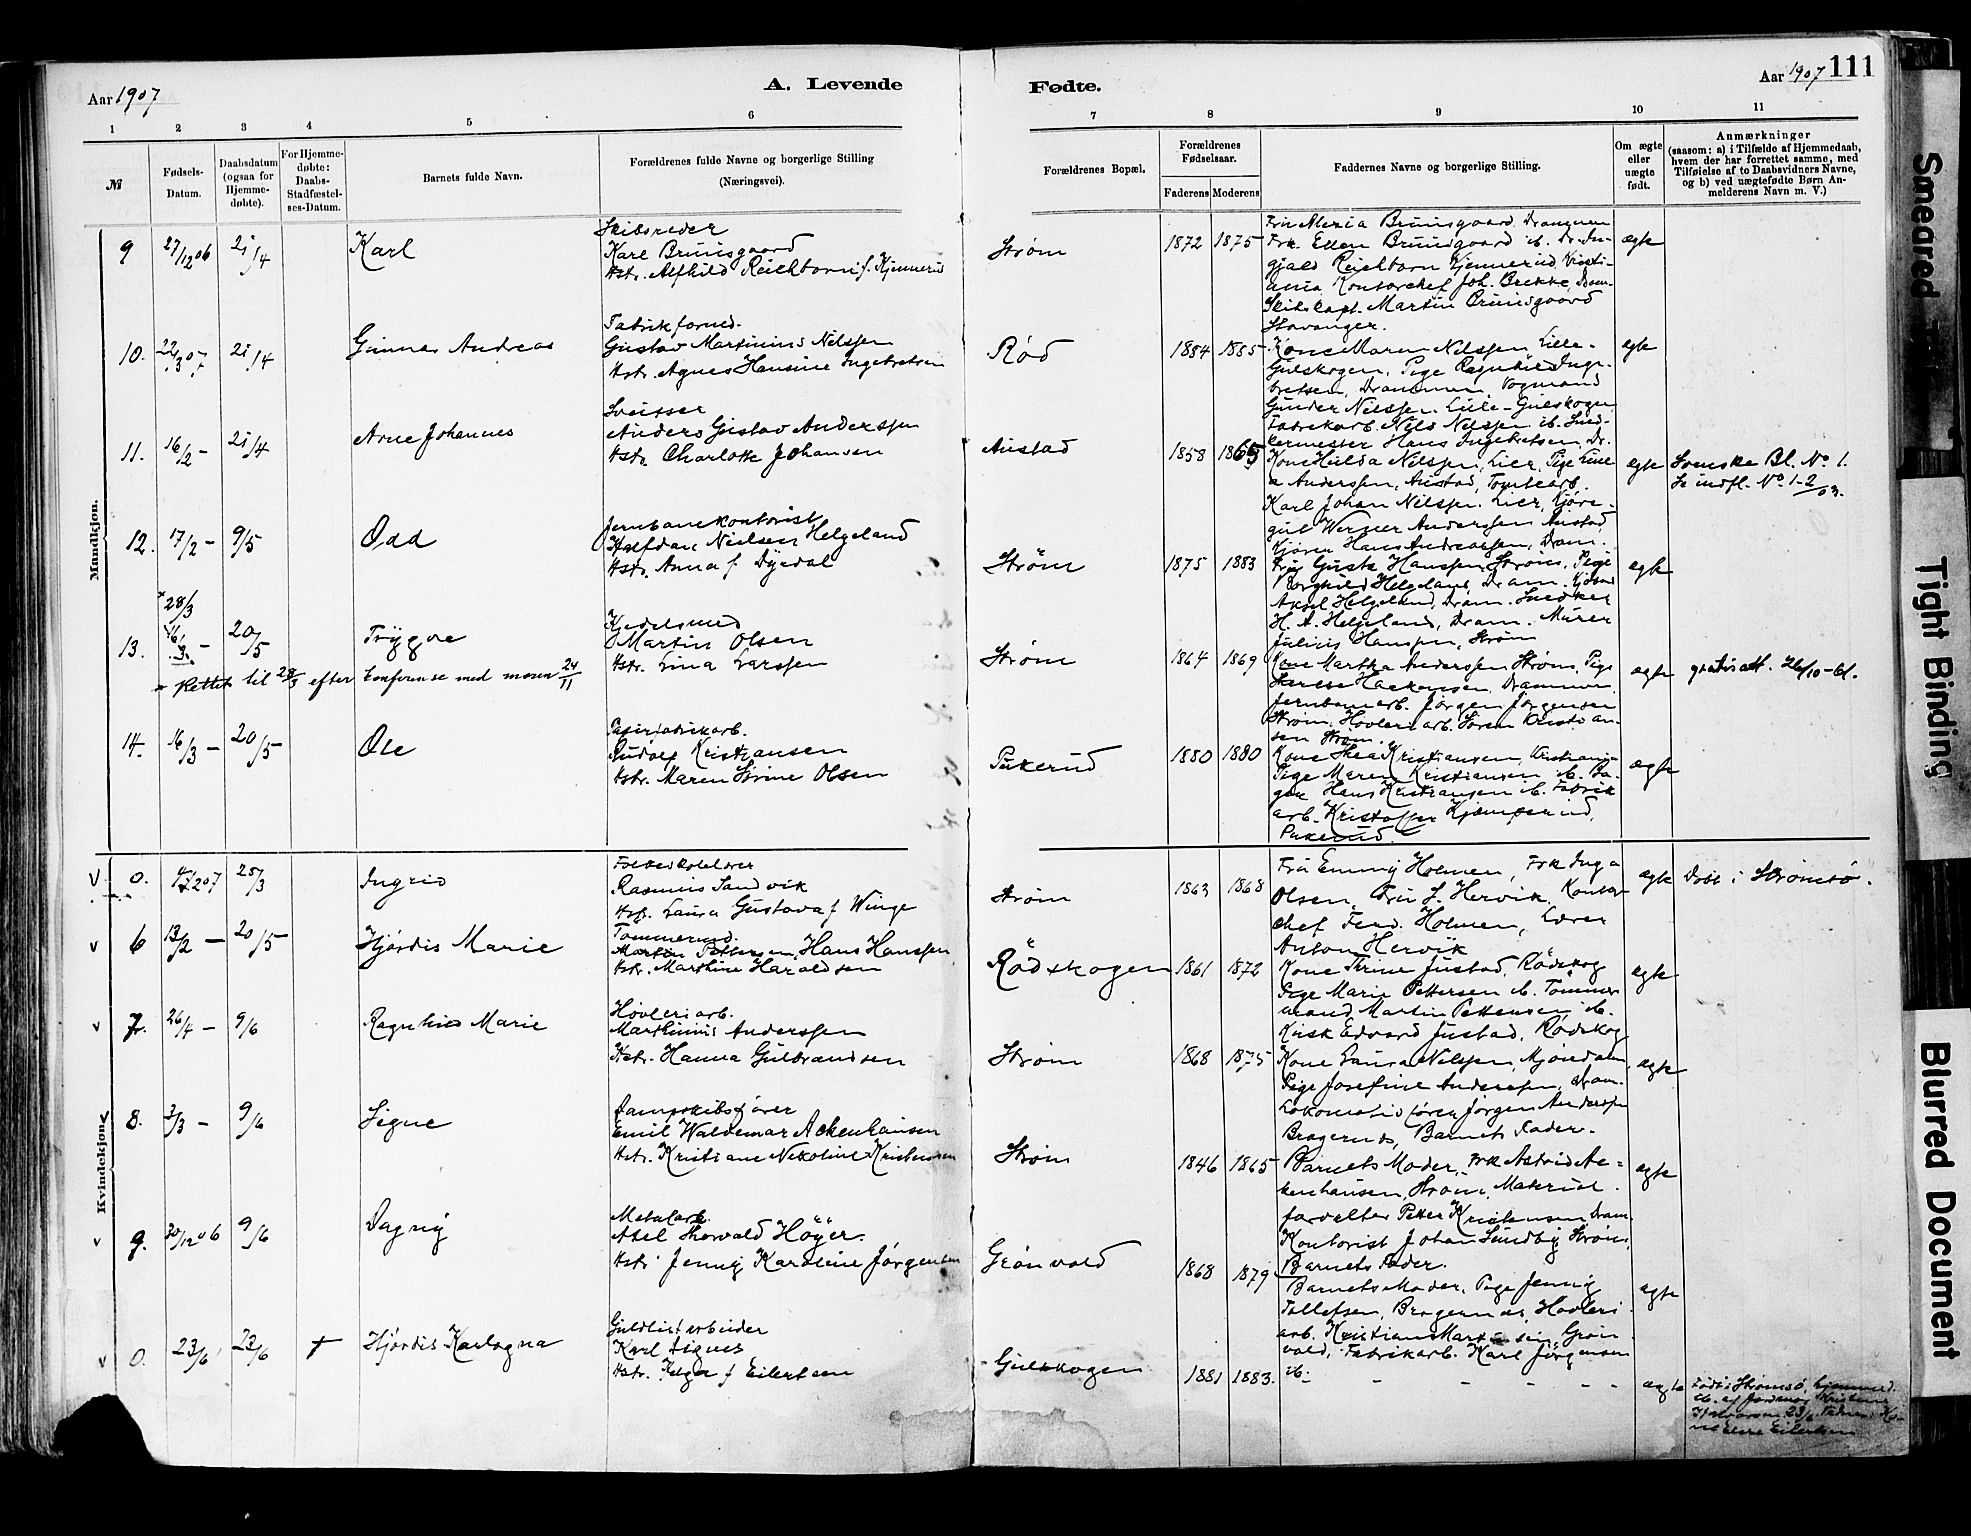 Aar 1907
A. Levende
Fødte.
Aar 1907 111
1 2 3 4 5 6 7 8 9 10 11
№
Fødsels-
Datum.
Daabsdatum
(ogsaa for
Hjemme-
døbte).
For Hjemme-
døbte:
Daabs-
Stadfæstel-
ses-Datum.
Barnets fulde Navn.
Forældrenes fulde Navne og borgerlige Stilling
(Næringsvei).
Forældrenes Bopæl.
Forældrenes
Fødselsaar.
Faderens Moderens
Faddernes Navne og borgerlige Stilling.
Om ægte
eller
uægte
født.
Anmærkninger
(saasom: a) i Tilfælde af Hjemmedaab,
hvem der har forrettet samme, med
Tilføielse af to Daabsvidners Navne,
og b) ved uægtefødte Børn An-
melderens Navn m. V.)
Mandkjøn.
9 27/12 06 21/4 Karl
Skibsreder
Karl Bruusgaard
Hstr. Alfhild Reichborn f. Kjennerud
Strøm 1872 1875
Fru Maria Bruusgaard, Drammen
Frk. Ellen Bruusgaard ib. Dr. In-
gjald Reichborn Kjennerud, Kristi-
ania Kontorchef Joh. Brekke, Dram.
Skibskapt. Martin Bruusgaard
Stavanger.
ægte
10. 22/3 07 21/4 Gunnar Andreas
Fabrikformd.
Gustav Martinius Nilssen
Hstr. Agnes Hansine Ingebretsen
Rød 1884 1885
Kone Maren Nilssen, Lille-
Gulskogen, Pige Ragnhild Inge-
bretsen, Drammen, Vogmand
Gunder Nilssen, Lille-Gulskogen
Fabrikarb. Nils Nilssen ib. Sned-
kermester Hans Ingebretsen, Dr.
egte
11. 16/2 - 21/4 Arne Johannes
Sveisser
Anders Gustav Anderssen
Hstr. Charlotte Johansen
Austad 1858 1865
Kone Hulda Nilssen, Lier, Pige
Anderssen, Austad, Tomtearb.
Karl Johan Nilssen Lier, Kjøre-
gut Werner Anderssen Austad,
Kjører Hans Andreassen, Dram.
egte
Svenske Bl. No 1.
Se indfl. No 1-2/03.
12. 17/2 - 9/5 Odd
Jernbanekontorist
Halfdan Nielsen Helgeland
Hstr. Anna f. Dyrdal
Strøm 1875 1883
Fru Gusta Hanssen, Strøm, Pige
Borghild Helgeland, Dram.
Aksel Helgeland, Dram. Snedker
H. A. Helgeland, Dram. Murer
Julius Hanssen, Strøm
egte
* 28/3
13. 16/3 - 20/5 Trygve
Kjedelsmed
Martin Olsen
Hstr. Lina Larssen
* Rettet til 28/3 efter konferense med moren 24/11
Strøm 1864 1869
Kone Martha Anderssen Strøm, Pige
Haakensen, Drammen,
Jernbanearb. Jørgen Jørgensen
Strøm, Høvleriarb. Søren Kristian-
sen Strøm.
egte
gratisatt. 26/10-61.
14. 16/3 - 20/5 Ole
Papirfabrikarb.
Rudolf Kristiansen
Hstr. Maren Sirine Olsen
Pukerud 1880 1880
Kone Thea Kristiansen, Kristiania
Pige Maren Kristiansen ib. Ba-
ger Hans Kristiansen ib. Fabrik
arb. Kristoffer Kjemperud,
Pukerud.
egte
Kvindekjøn.
v 0. 4/2 07 25/3 Ingrid
Folkeskolelærer
Rasmus Sandvik
Hstr. Laura Gustava f. Winge
Strøm 1863 1868
Fru Emmy Holmen, Frk Inga
Olsen, Fru S. Hervik, Kontor
chef Ferd. Holmen, Lærer
Anton Hervik
egte Døbt i Strømsø.
v 6 13/2 - 20/5 - Hjørdis Marie
Tømmermd.
Martin Pettersen, Hans Hanssen
Hstr. Marthine Haraldsen
Rødskogen 1861 1872
Kone Trine Justad, Rødskog
Pige Marie Pettersen ib. Tømmer
mand Martin Pettersen ib.
Kusk Edvard Justad, Rødskog
egte
v 7. 26/4 - 9/6 Ragnhild Marie
Høvleriarb.
Marthinius Anderssen
Hstr. Hanna Gulbrandsen
Strøm 1868 1875
Kone Laura Nilssen, Mjøndalen
Pige Josefine Anderssen, Dram.
Lokomotivfører Jørgen Anderssen
Bragernes, Barnets Fader.
egte
8. 3/3 - 9/6 Signe
Dampskibsfører
Emil Waldemar Ackenhausen
Hstr. Kristiane Nikoline Kristensen
Strøm 1846 1865
Barnets Moder, Frk Astrid Ac-
kenhausen, Strøm, Material
forvalter Petter Kristensen Dram.
Kontorist Johan Sundby, Strøm,
Barnets Fader.
egte
v 9. 30/12 06 9/6 Dagny
Metalarb.
Axel Thorvald Høyer.
Hstr. Jenny Karoline Jørgensen
Grønvold 1868 1879
Barnets Moder, Pige Jenny
Tollefsen, Bragernes, Høvleri
arb. Kristian Martinsen, Grøn
vold, Fabrikarb. Karl Jørgensen
ib.
egte
v 0. 23/6 23/6 + Hjørdis Karlogna
Guldlistarbeider
Karl Signes
Hstr. Helga f. Eilertsen
Gulskogen 1881 1883. - - - - - -
ægte
Født i Strømsø, hjemmed.
Smeared
Tight Binding
Blurred Document